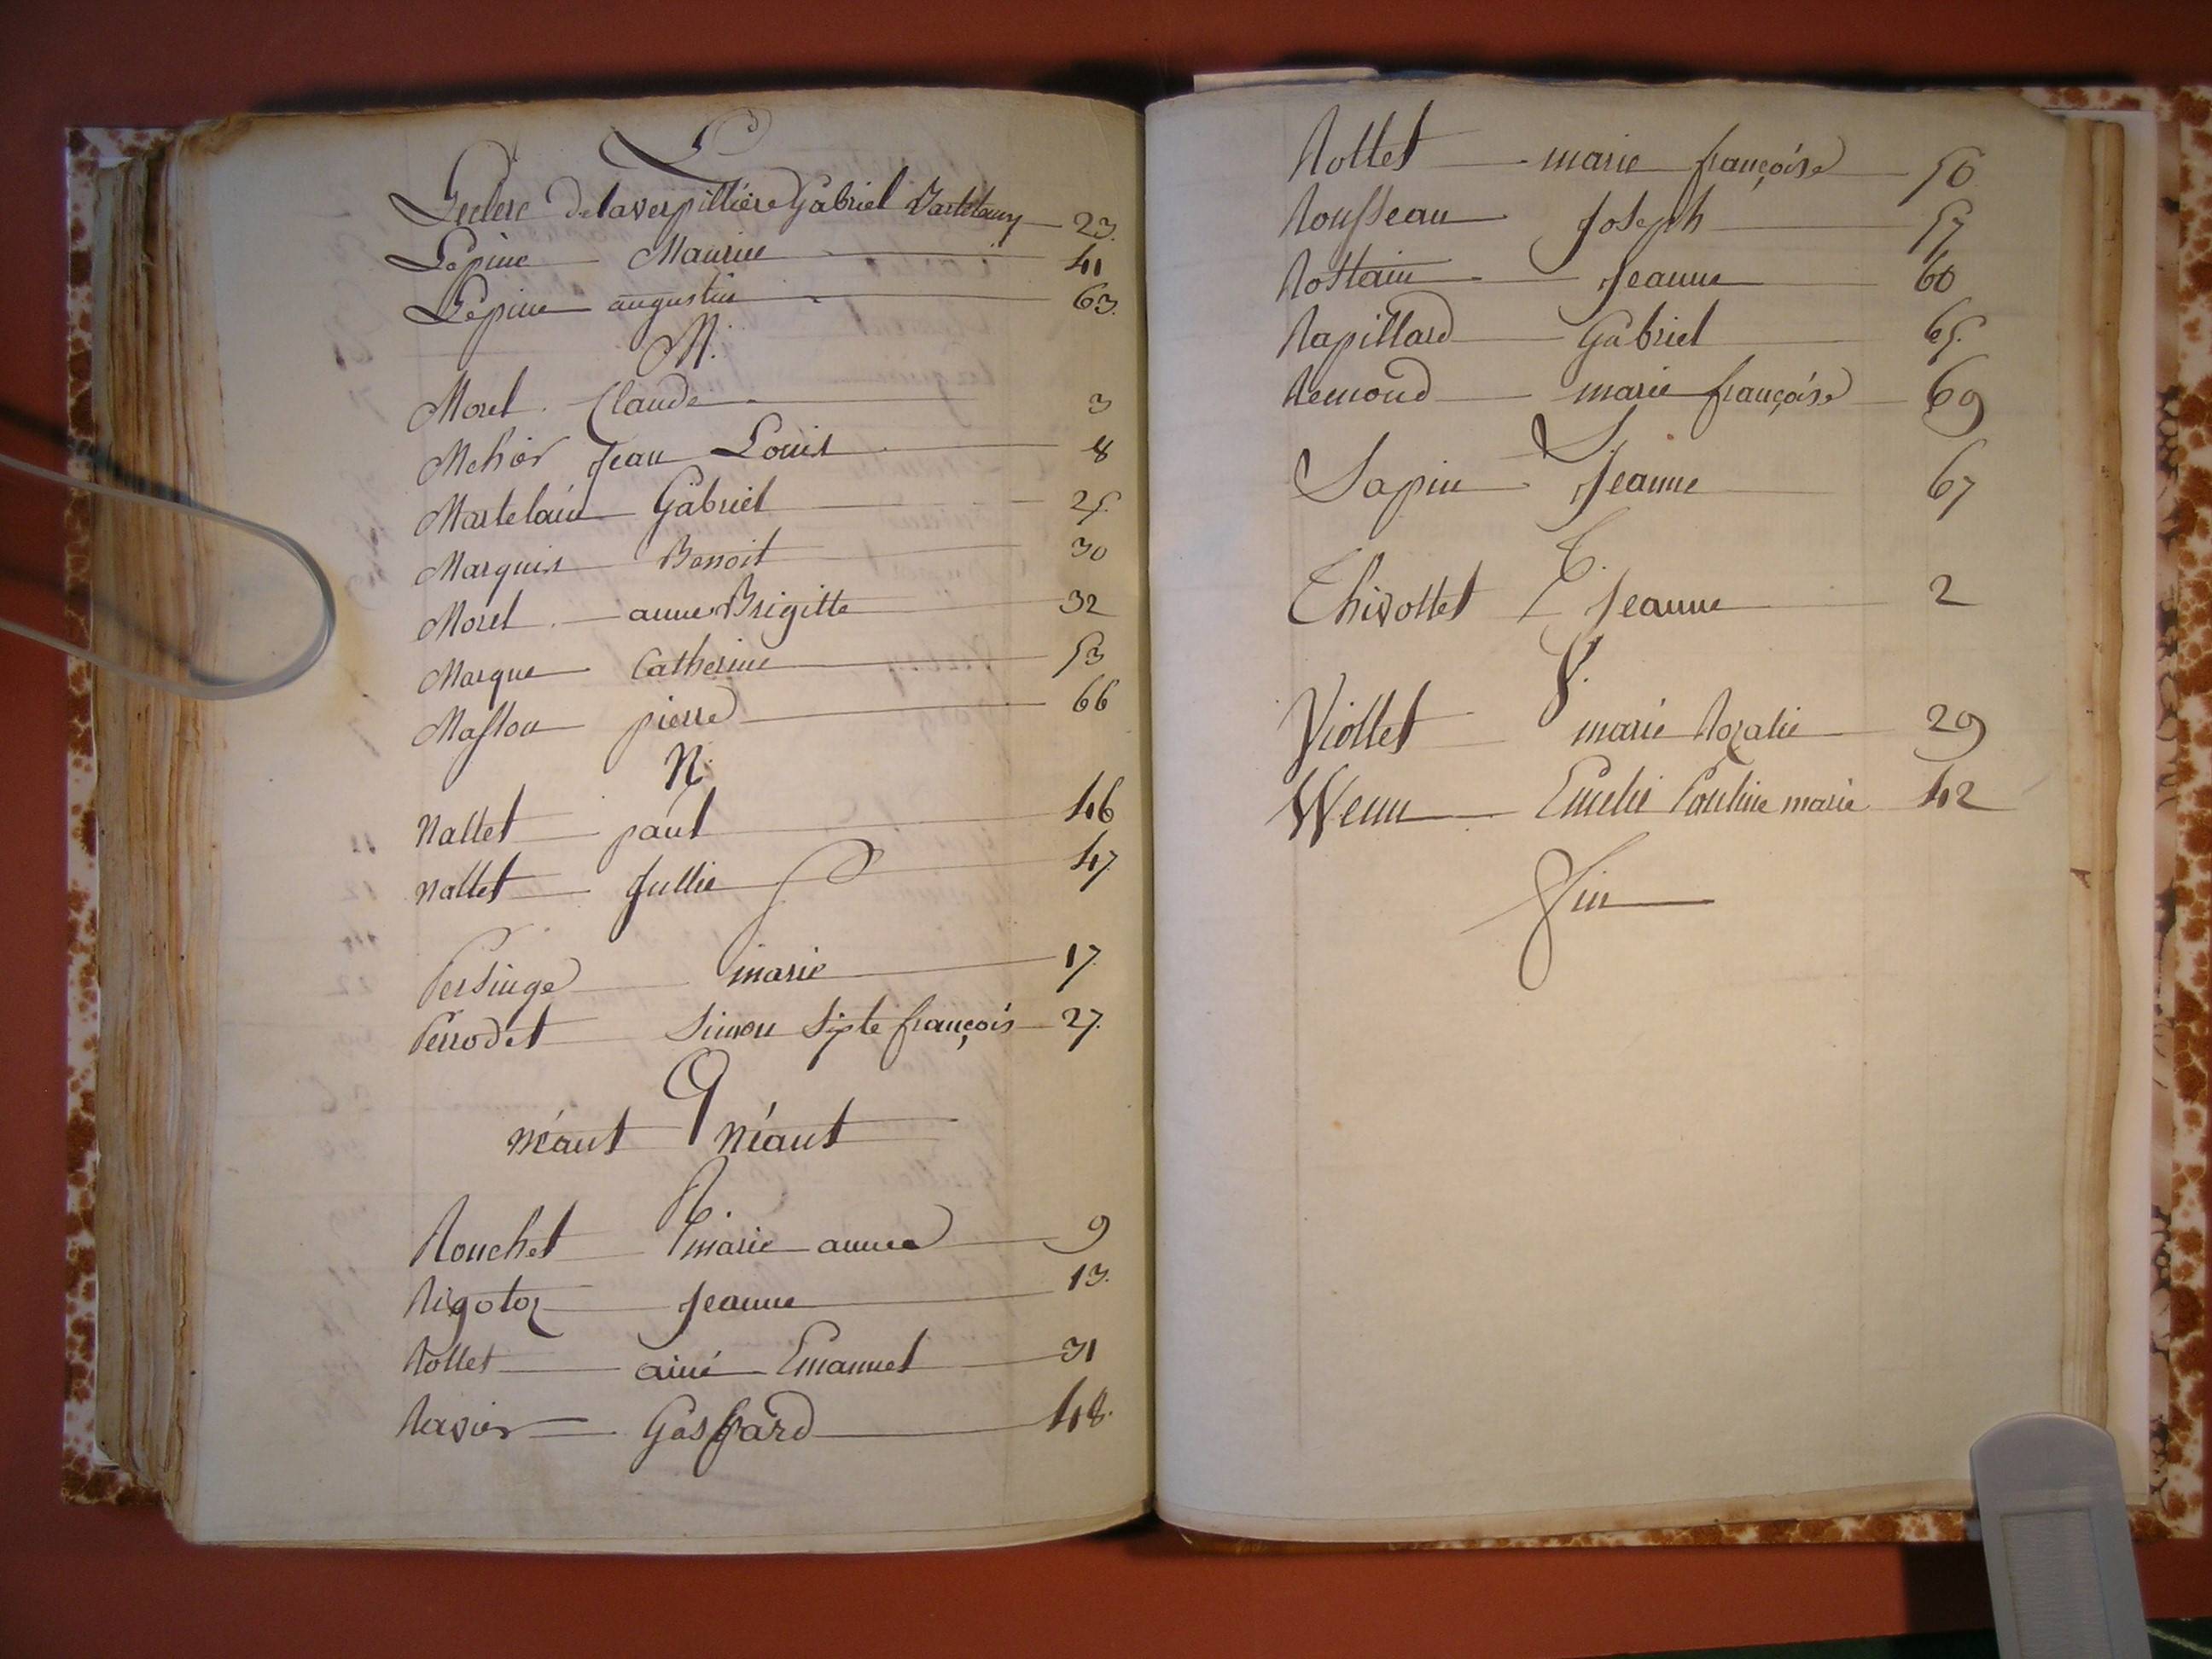 L
Leclerc Delaverpillière Gabriel Bartelemy 23.
Lépine Maurice 41
Lépine augustin 63.
M.
Morel Claude 3
Mehier Jean Louis 8
Martelain Gabriel 25.
Marquis Benoit 30
Morel anne Brigitte 32
Marque Catherine 53
Masson pierre 66
N.
Nallet paul 46
Nallet Jullie 47.
P
Persinge marie 17.
Perrodet Simon Sixte françois 27.
Q
Néant Néant
R.
Rouchet marie anne 9
Rigotoz Jeanne 13.
Rollet aimé Emanuel 31
Ravier Gaspard 48.
Rollet marie françoise 50
Rousseau Joseph 57
Rostain Jeanne 60
Rapillard Gabriel 65.
Remond marie françoise 69
S
Sapin Jeanne 67
T.
Thivollet Jeanne 2
V.
Viollet marie Rozalie 29
Wenn Emelie Pauline marie 42
Fin